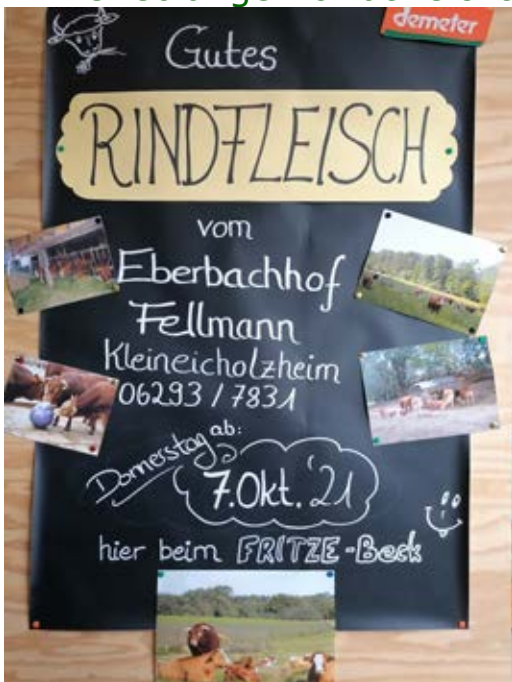 demeter
Gutes
RINDFLEISCH
vom
Eberbachhof
Fellmann
Kleineicholzheim
06293 / 7831
Donnerstag ab:
7.Okt. '21
hier beim FRITZE-Beck